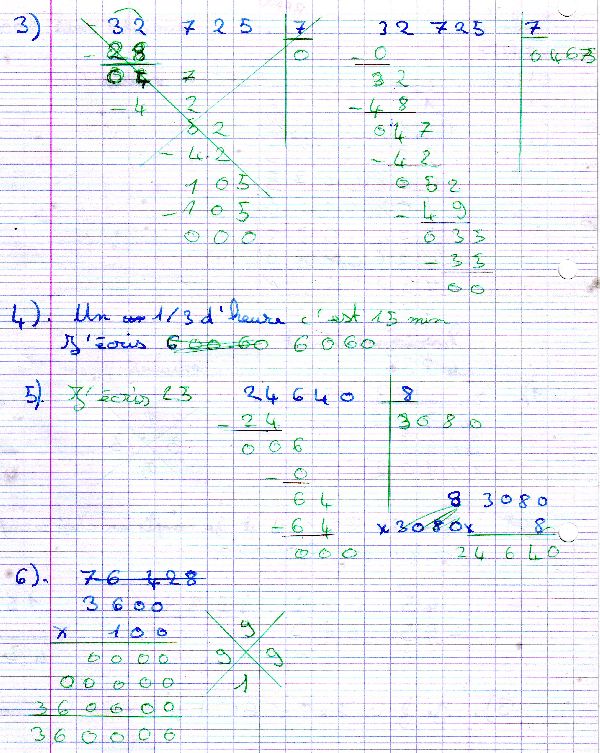 3) 32 725 7 32 725 7
- 28 0 - 0 04675
04 7 32
- 4 2 - 48
52 047
- 42 - 42
105 052
- 105 - 49
000 035
- 35
00
4). Un 1/3 d'heure c'est 15 min
J'écris 600 60 6060
5). J'écris 23 24640 8
- 24 3080
006
- 0
64 8 3080
- 64 x3080x 8
000 24640
6). 76 428
3600
x 100 9
0000 9 9
00000 1
360000
360000